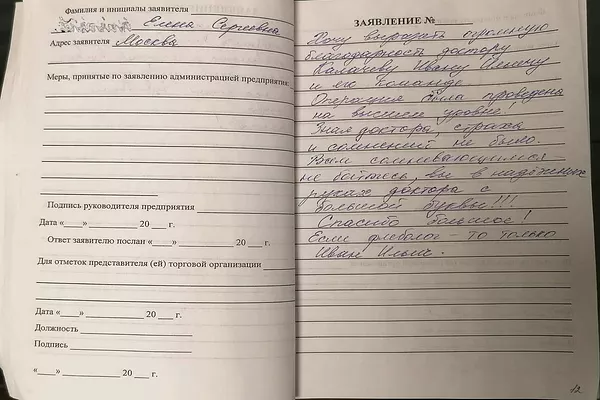 Фамилия и инициалы заявителя
Елена Сергеевна
Адрес заявителя Москва
Меры, принятые по заявлению администрацией предприятия:
Подпись руководителя предприятия
Дата «___» ________ 20 ___ г.
Ответ заявителю послан «___» ________ 20 ___ г.
Для отметок представителя (ей) торговой организации
Дата «___» ________ 20 ___ г.
Должность
Подпись
«___» ________ 20 ___ г.
ЗАЯВЛЕНИЕ №
Хочу выразить огромную
благодарность доктору
Ивану Ильичу
и его команде.
Операция была проведена
на высшем уровне!
Зная доктора, страха
и сомнений не было.
Всем сомневающимся -
не бойтесь, вы в надёжных
руках доктора с
большой буквы!!!
Спасибо большое!
Если флеболог - то только
Иван Ильич.
12